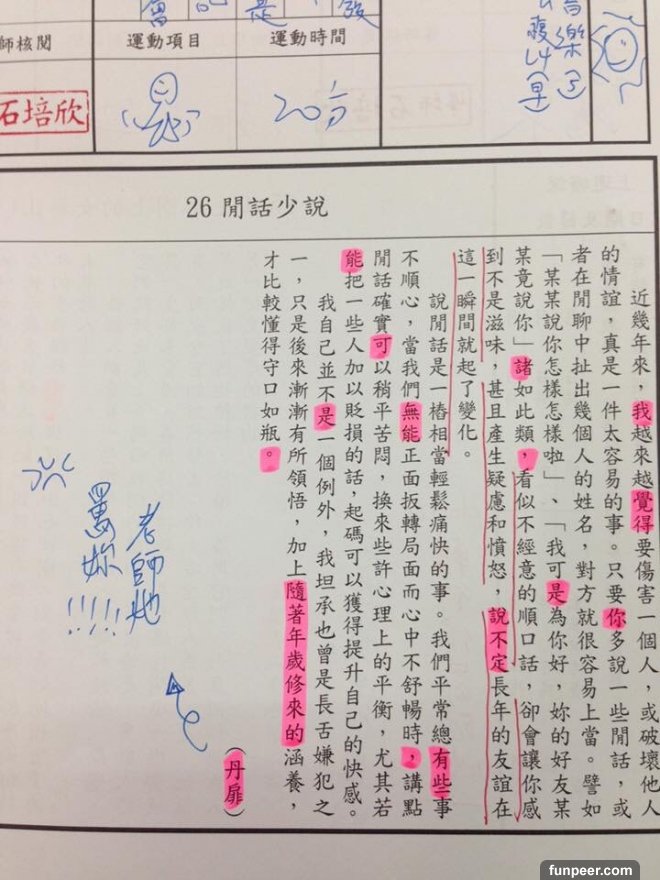 師核閱
運動項目
運動時間
石培欣
20分
26 閒話少說
近幾年來，我越來越覺得要傷害一個人，或破壞他人
的情誼，真是一件太容易的事。只要你多說一些閒話，或
者在閒聊中扯出幾個人的姓名，對方就很容易上當。譬如
「某某說你怎樣怎樣啦」、「我可是為你好，妳的好友某
某竟說你」諸如此類，看似不經意的順口話，卻會讓你感
到不是滋味，甚且產生疑慮和憤怒，說不定長年的友誼在
這一瞬間就起了變化。
說閒話是一樁相當輕鬆痛快的事。我們平常總有些事
不順心，當我們無能正面扳轉局面而心中不舒暢時，講點
閒話確實可以稍平苦悶，換來些許心理上的平衡，尤其若
能把一些人加以貶損的話，起碼可以獲得提升自己的快感。
我自己並不是一個例外，我坦承也曾是長舌嫌犯之
一，只是後來漸漸有所領悟，加上隨著年歲修來的涵養，
才比較懂得守口如瓶。
（丹扉）
老師她
罵妳!!!!!
funpeer.com